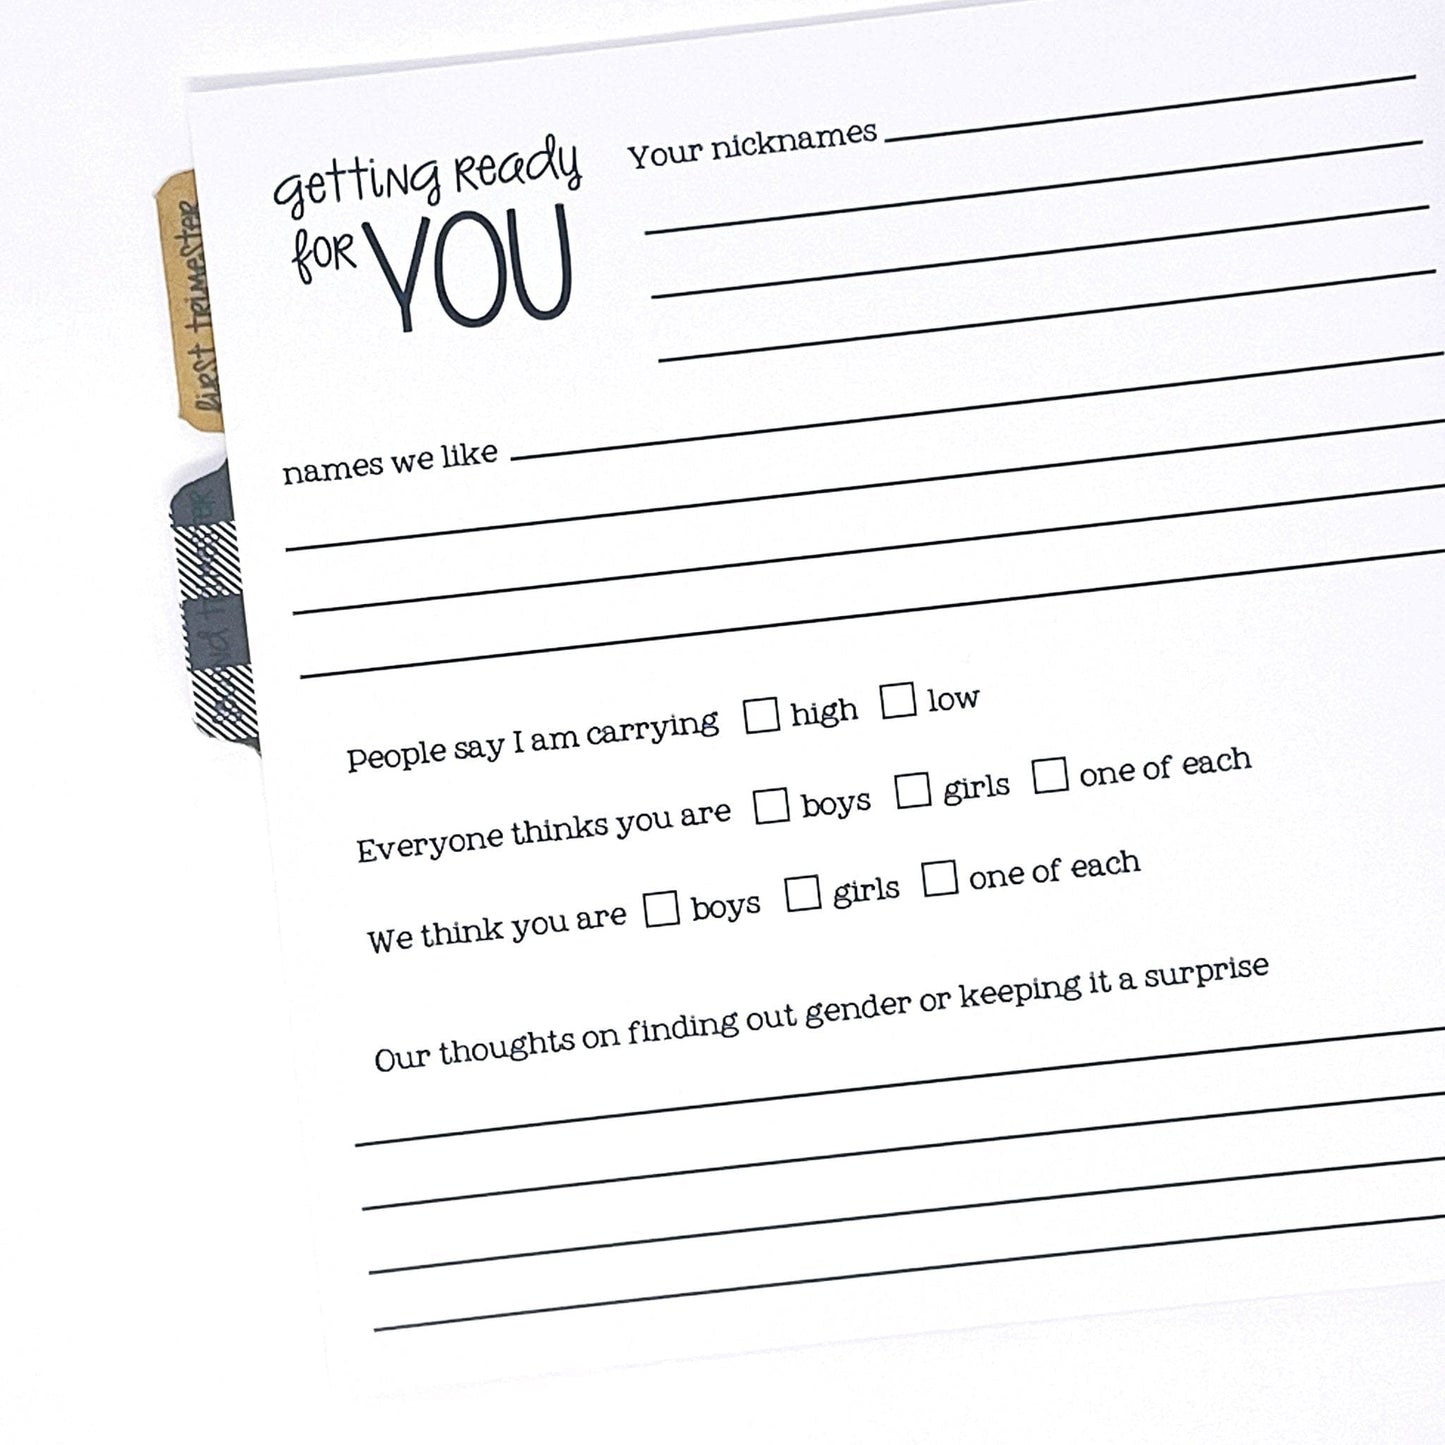 getting ready
for YOU
Your nicknames
names we like
People say I am carrying high low
Everyone thinks you are boys girls one of each
We think you are boys girls one of each
Our thoughts on finding out gender or keeping it a surprise
first trimester
second trimester